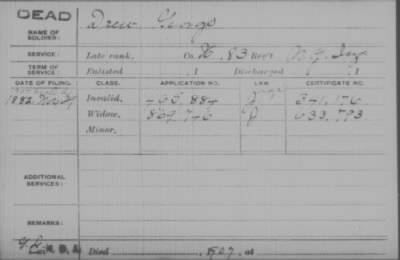 DEAD
NAME OF SOLDIER: Drew George
SERVICE: Late rank, Co. K, 83 Reg't N.Y. Inf.
TERM OF SERVICE: Enlisted , 1 Discharged , 1
DATE OF FILING. CLASS. APPLICATION NO. LAW. CERTIFICATE NO.
1882, Invalid, 465.884 341,176
Widow, 869,746 633,793
Minor,
ADDITIONAL SERVICES:
REMARKS:
Died , 1907, at